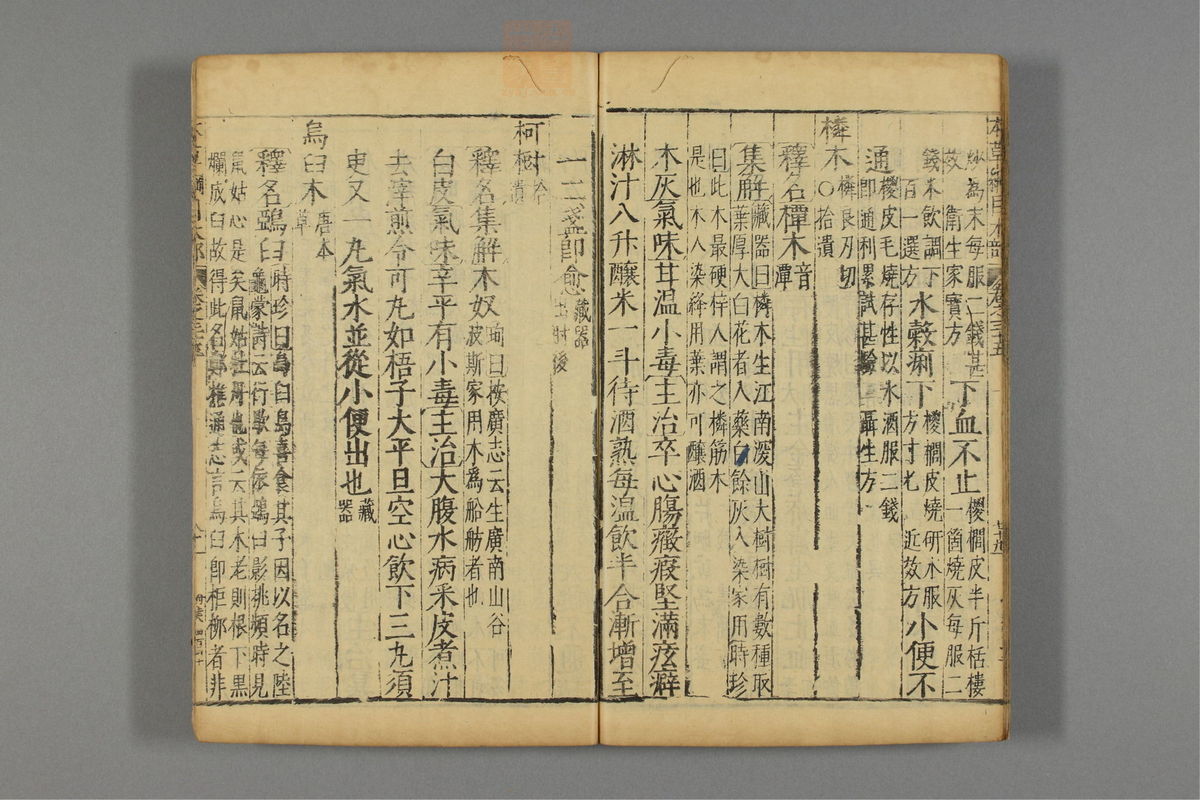 本草綱目木部
炒為末每服二錢甚
效 衛生家寶方
下血不止
椶櫚皮半斤栝樓
一箇燒灰每服二
錢米飲調下
百一選方
水穀痢下
椶櫚皮燒研水服
方寸匕 近效方
小便不
通
椶皮毛燒存性以水酒服二錢
即通利累試甚驗 攝生方
橉木
橉良刃切
○拾遺
釋名橝木音潭
集解
藏器曰橉木生江南深山大樹樹有數種取
葉厚大白花者入藥自餘灰入染家用時珍
曰此木最硬梓人謂之橉筋木
是也木入染絳用葉亦可釀酒
木灰氣味甘溫小毒主治卒心腸癥瘕堅滿痃癖
淋汁八升釀米一斗待酒熟每溫飲半合漸增至
一二盞即愈
藏器
出肘後
柯樹拾遺
釋名集解木奴
珣曰按廣志云生廣南山谷
波斯家用木為船舫者也
白皮氣味辛平有小毒主治大腹水病采皮煮汁
去滓煎令可丸如梧子大平旦空心飲下三丸須
臾又一丸氣水並從小便出也藏器
烏臼木唐本草
釋名鵶臼
時珍曰烏臼烏喜食其子因以名之陸
龜蒙詩云行歇每依鵶臼影挑頻時見
鼠姑心是矣鼠姑牡丹也或云其木老則根下黑
爛成臼故得此名鄭樵通志言烏臼即柜桺者非
本草綱目木部